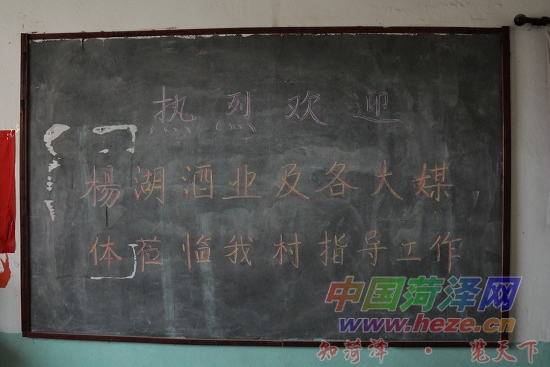 热烈欢迎
楊湖酒业及各大媒
体莅临我村指导工作
中国菏泽网
www.heze.cn
知菏泽 · 览天下